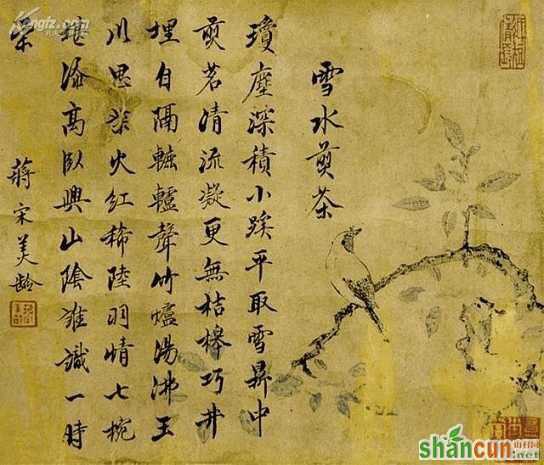 雪水煎茶
瓊塵深積小蹊平取雪鼎中
煎茗清流凝更無桔槔巧井
埋自隔轆轤聲竹爐湯沸玉
川思火紅稀陸羽情七椀
添高臥興山陰誰識一時
榮
蔣宋美齡
shancun
山村网
.net